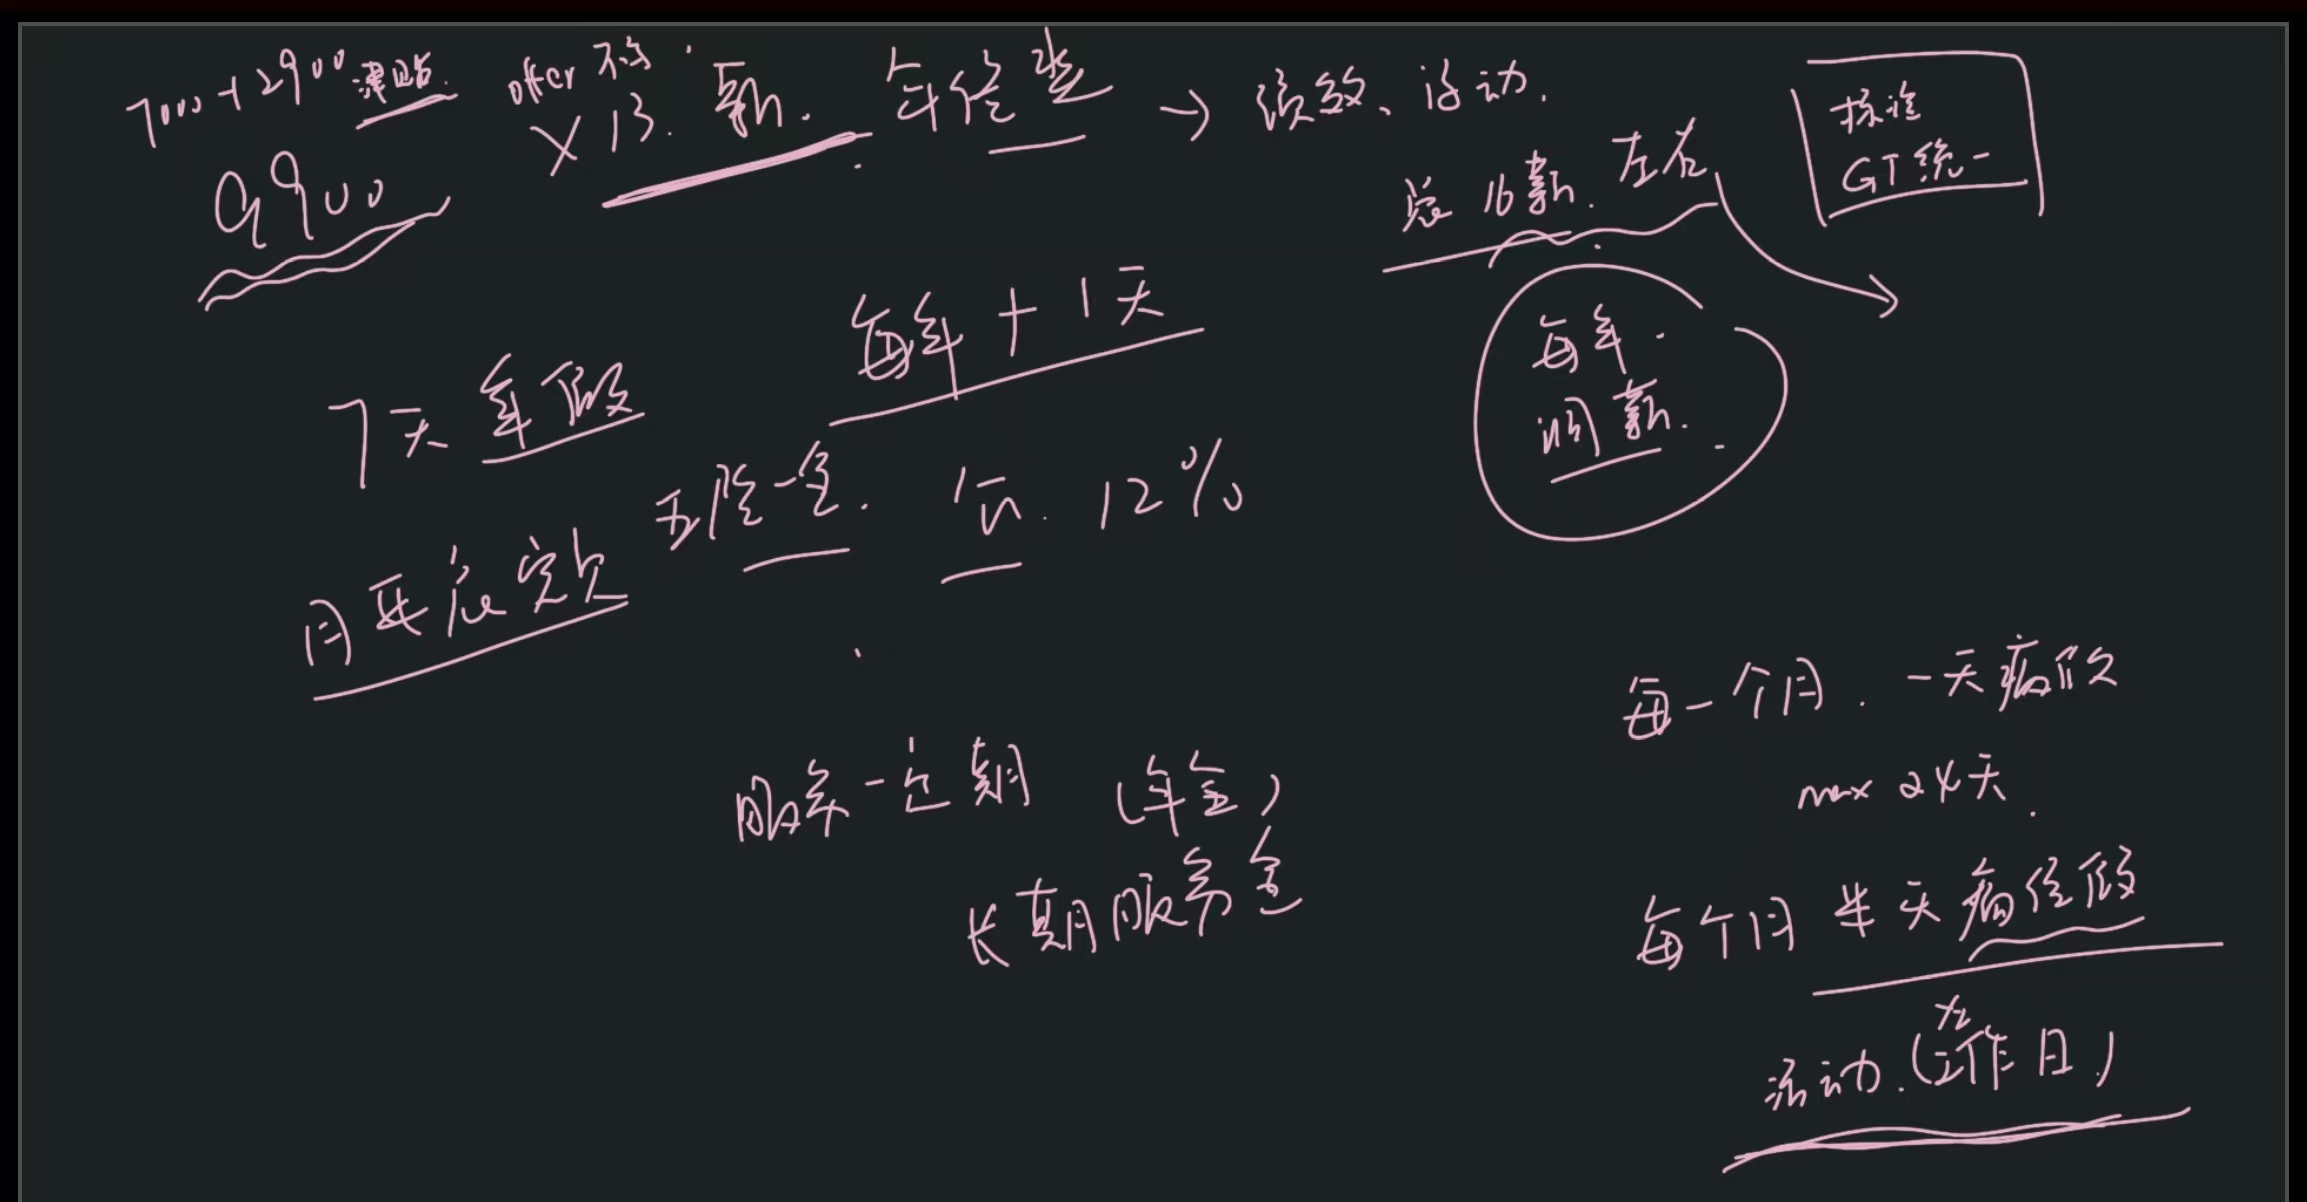 7000+2900 津贴
9900
offer 不写
×13. 薪.
年终奖 → 绩效、活动.
总 16薪. 左右
标准
GT统一
每年
调薪.
7天年假
每年+1天
五险一金.
12%
服务一定期 (年金)
长期服务金
每一个月. 一天病假
max 24天.
每个月 半天病假
活动.(工作日)